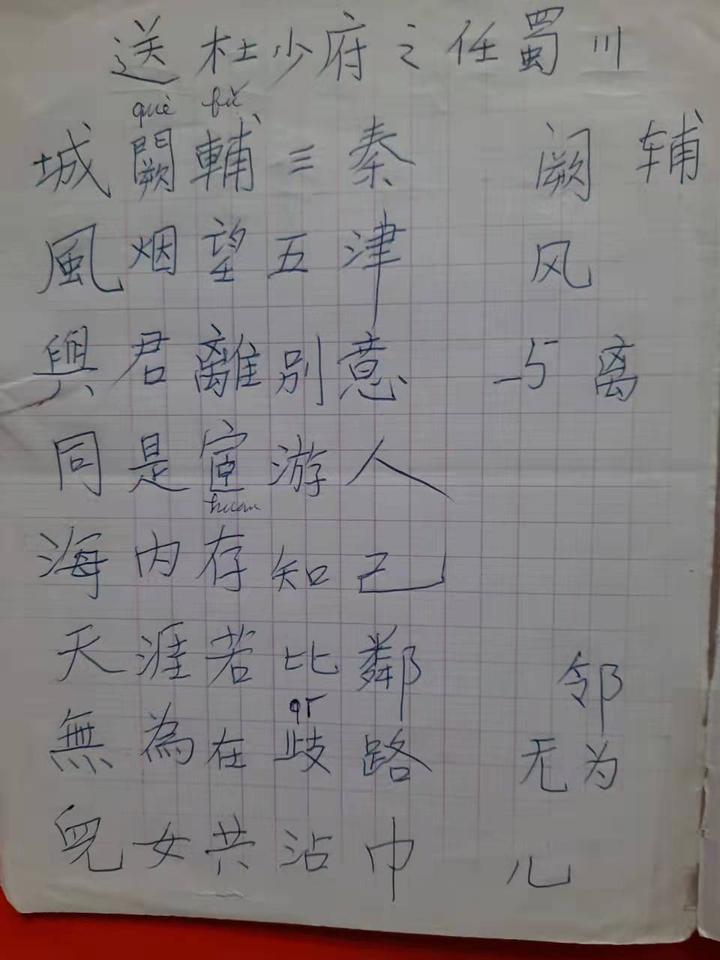 送杜少府之任蜀川
què fǔ
城闕輔三秦 阙 辅
風烟望五津 风
與君離別意 与 离
同是宦游人
huan
海内存知己
天涯若比鄰 邻
qí
無為在歧路 无为
兒女共沾巾 儿